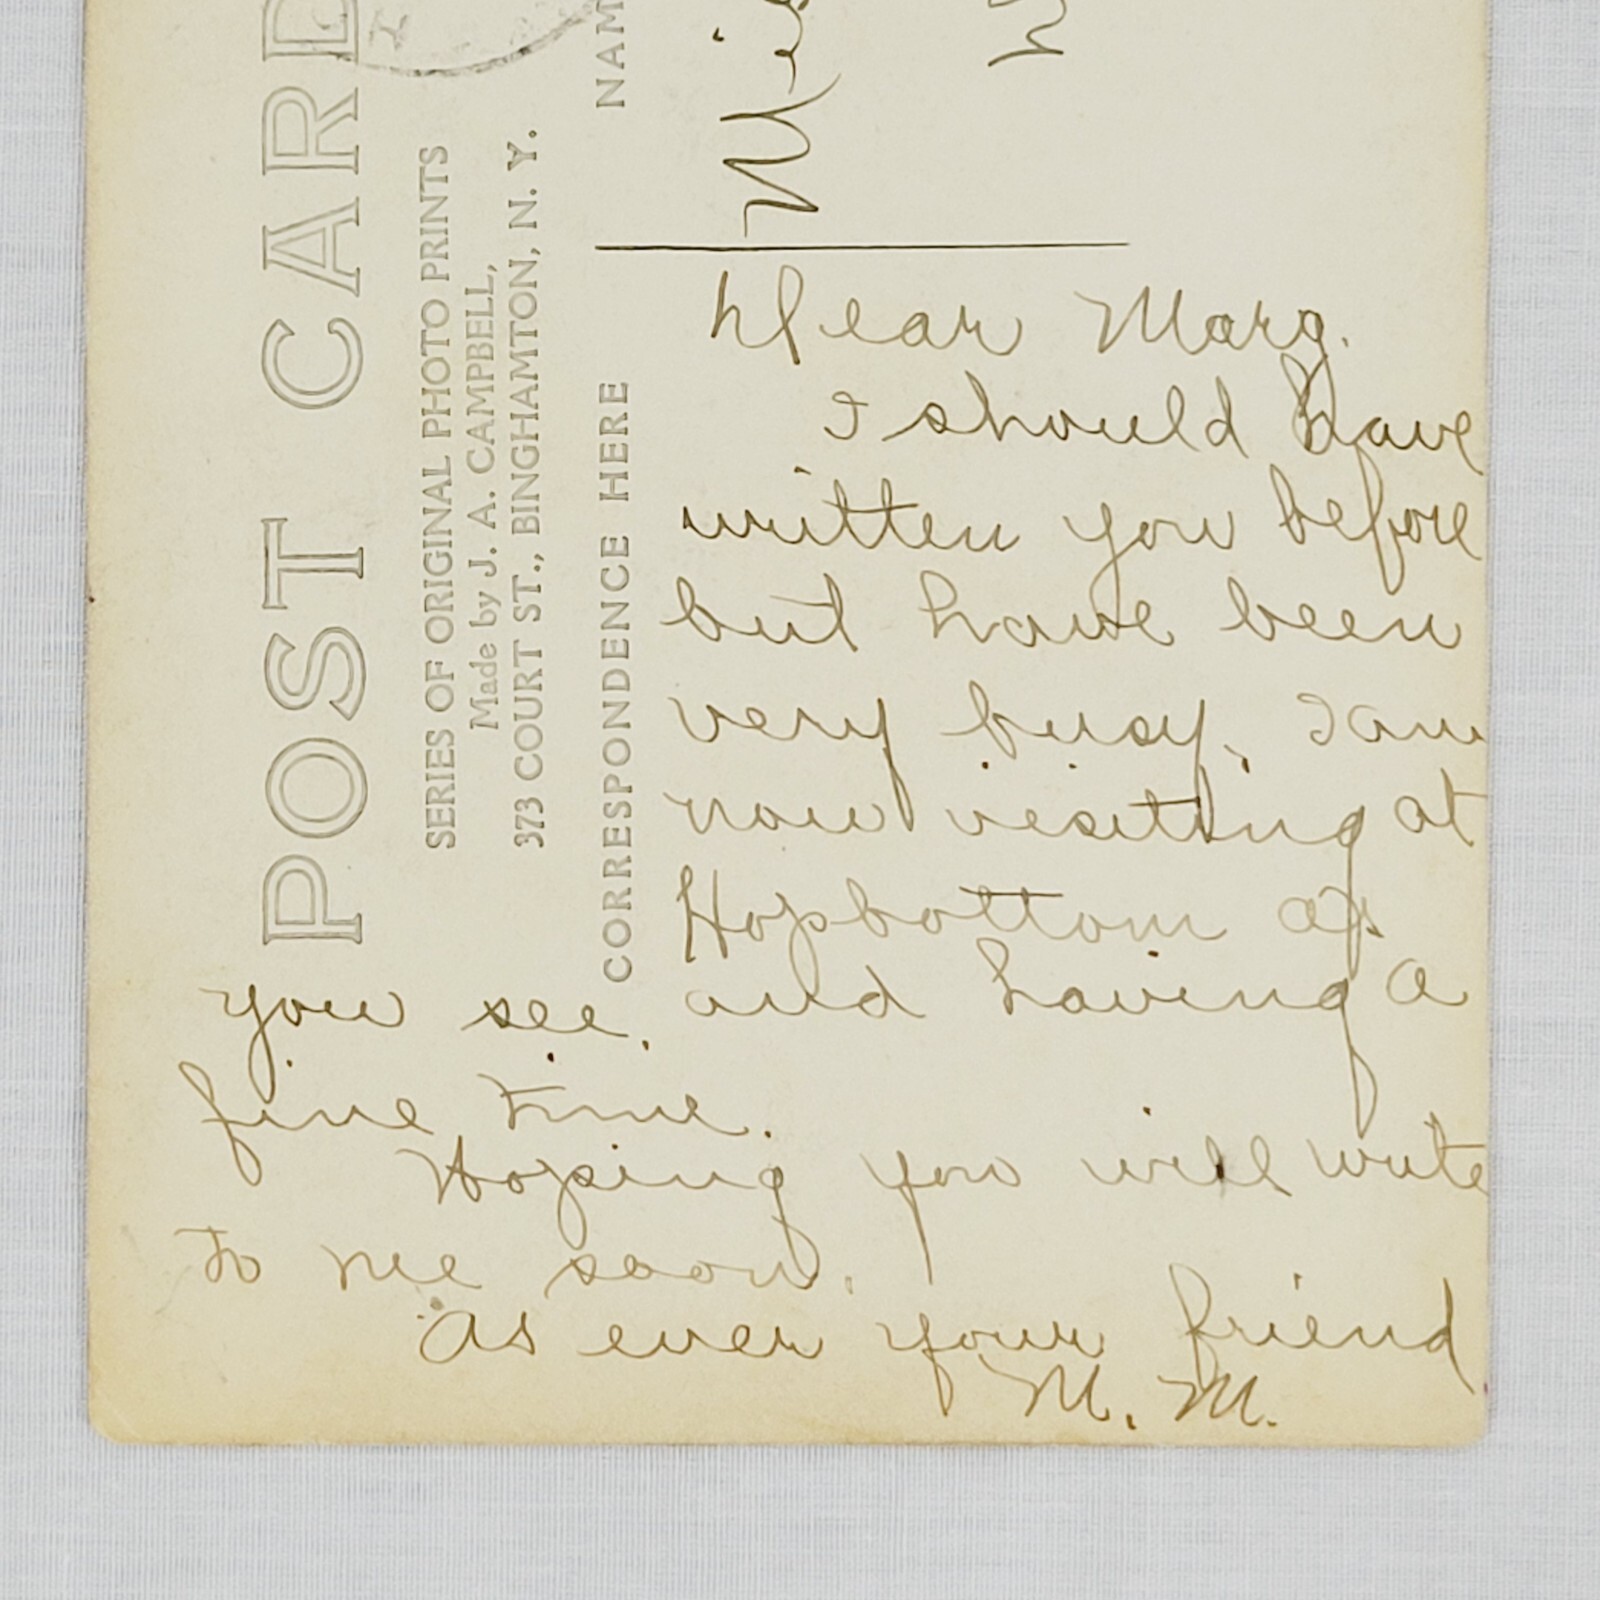 POST CARD
SERIES OF ORIGINAL PHOTO PRINTS
Made by J. A. CAMPBELL,
373 COURT ST., BINGHAMTON, N. Y.
CORRESPONDENCE HERE
NAM
Mis
Dear Marg.
I should have
written you before
but have been
very busy. I am
now visiting at
Hopbottom as
you see. and having a
fine time.
Hoping you will write
to me soon.
As ever your friend
M. M.